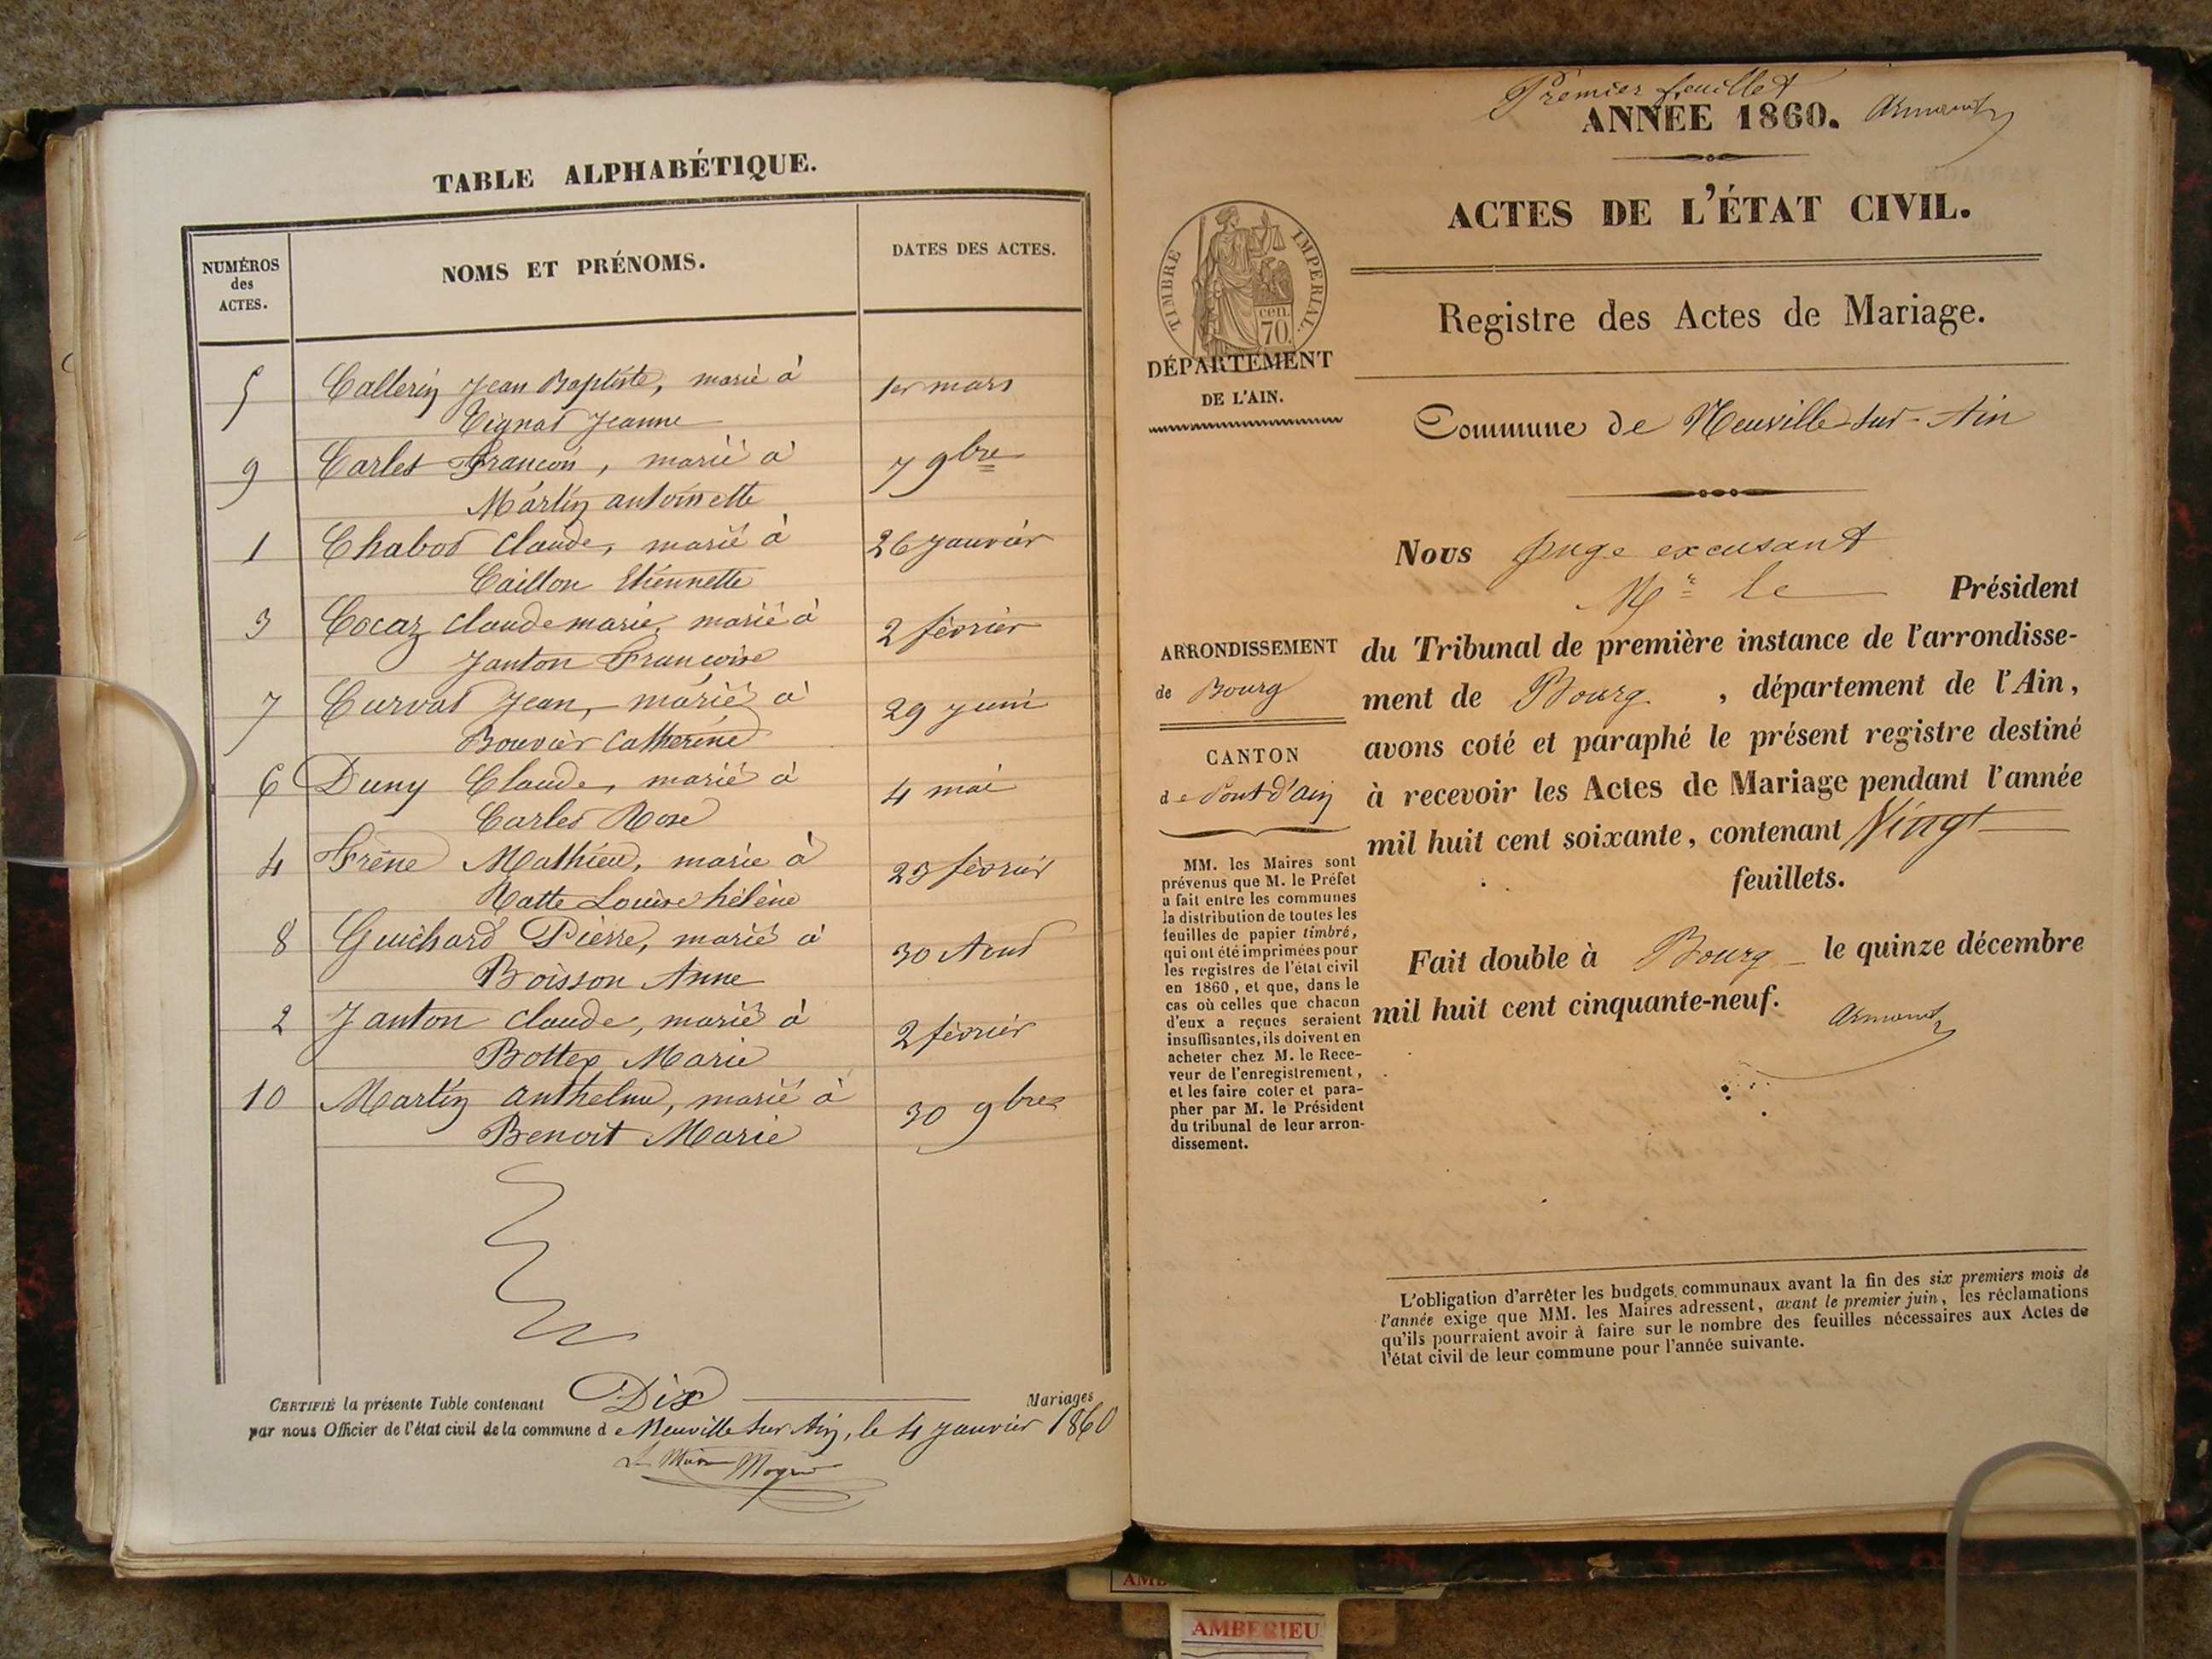 TABLE ALPHABÉTIQUE.
NUMÉROS des ACTES.
NOMS ET PRÉNOMS.
DATES DES ACTES.
5 Callerin Jean Baptiste, marié à 1er mars
Jeanne
9 Carlet François, marié à 7 9bre
Martin antoinette
1 Chabod Claude, marié à 26 Janvier
Caillon Etiennette
3 Cocaz Claude marie, marié à 2 février
Janton Françoise
7 Curvat Jean, marié à 29 juin
Bouvier Catherine
6 Duny Claude, marié à 4 mai
Carlet Rose
4 Frêne Mathieu, marié à 23 février
Natte Louise hélène
8 Guichard Pierre, marié à 30 Aout
Boisson Anne
2 Janton Claude, marié à 2 février
Bottex Marie
10 Martin anthelme, marié à 30 9bre
Benoit Marie
CERTIFIÉ la présente Table contenant Dix Mariages
par nous Officier de l'état civil de la commune de Neuville sur Ain, le 4 Janvier 1860
Le Maire
Premier feuillet
ANNÉE 1860. Armand
ACTES DE L'ÉTAT CIVIL.
TIMBRE IMPERIAL.
cen. 70.
Registre des Actes de Mariage.
DÉPARTEMENT
DE L'AIN.
Commune de Neuville-sur-Ain
Nous juge excusant
Mr le Président
du Tribunal de première instance de l'arrondisse-
ment de Bourg, département de l'Ain,
avons coté et paraphé le présent registre destiné
à recevoir les Actes de Mariage pendant l'année
mil huit cent soixante, contenant Vingt
feuillets.
Fait double à Bourg le quinze décembre
mil huit cent cinquante-neuf.
Armand
ARRONDISSEMENT
de Bourg
CANTON
de Pont d'ain
MM. les Maires sont
prévenus que M. le Préfet
a fait entre les communes
la distribution de toutes les
feuilles de papier timbré,
qui ont été imprimées pour
les registres de l'état civil
en 1860, et que, dans le
cas où celles que chacun
d'eux a reçues seraient
insuffisantes, ils doivent en
acheter chez M. le Rece-
veur de l'enregistrement,
et les faire coter et para-
pher par M. le Président
du tribunal de leur arron-
dissement.
L'obligation d'arrêter les budgets communaux avant la fin des six premiers mois de
l'année exige que MM. les Maires adressent, avant le premier juin, les réclamations
qu'ils pourraient avoir à faire sur le nombre des feuilles nécessaires aux Actes de
l'état civil de leur commune pour l'année suivante.
AMBERIEU